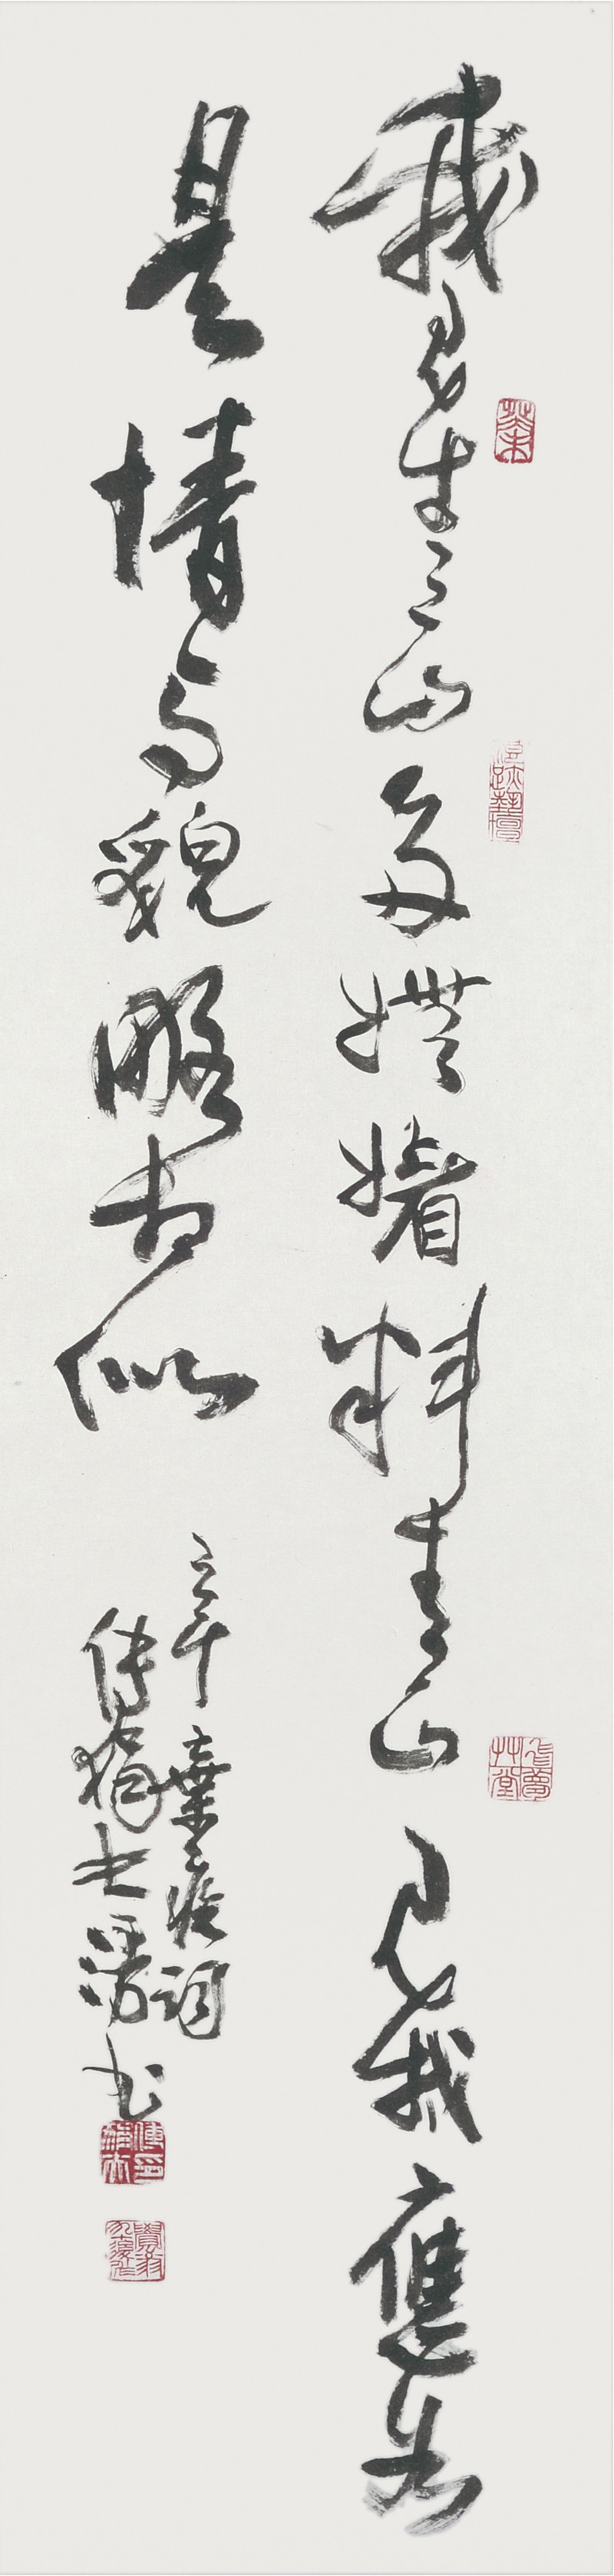 我見青山多嫵媚料青山見我應如
是情与貌略相似
辛棄疾詞
傅狷夫書